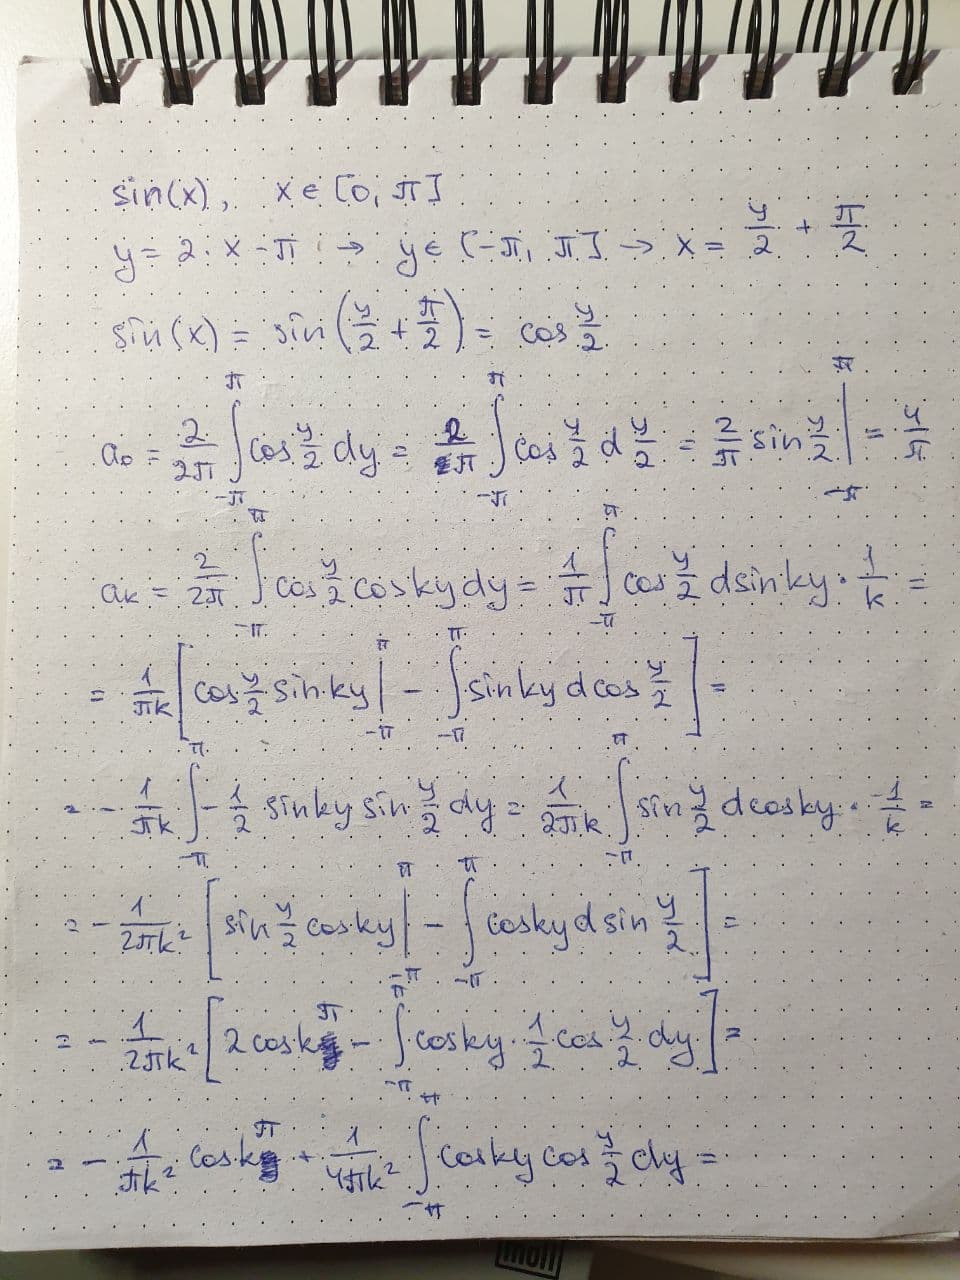 sin(x), x ∈ [0, π]
y = 2·x - π → y ∈ [-π, π] → x = y/2 + π/2
sin(x) = sin(y/2 + π/2) = cos y/2
a₀ = 2/2π ∫_{-π}^{π} cos y/2 dy = 2/π ∫_{-π}^{π} cos y/2 d y/2 = 2/π sin y/2 |_{-π}^{π} = 4/π
aₖ = 2/2π ∫_{-π}^{π} cos y/2 cos ky dy = 1/π ∫_{-π}^{π} cos y/2 d sin ky · 1/k =
= 1/πk [cos y/2 sin ky |_{-π}^{π} - ∫_{-π}^{π} sin ky d cos y/2] =
= - 1/πk ∫_{-π}^{π} - 1/2 sin ky sin y/2 dy = 1/2πk ∫_{-π}^{π} sin y/2 d cos ky · -1/k =
= - 1/2πk² [sin y/2 cos ky |_{-π}^{π} - ∫_{-π}^{π} cos ky d sin y/2] =
= - 1/2πk² [2 cos kπ - ∫_{-π}^{π} cos ky · 1/2 cos y/2 dy] =
= - 1/πk² cos kπ + 1/4πk² ∫_{-π}^{π} cos ky cos y/2 dy =
moll